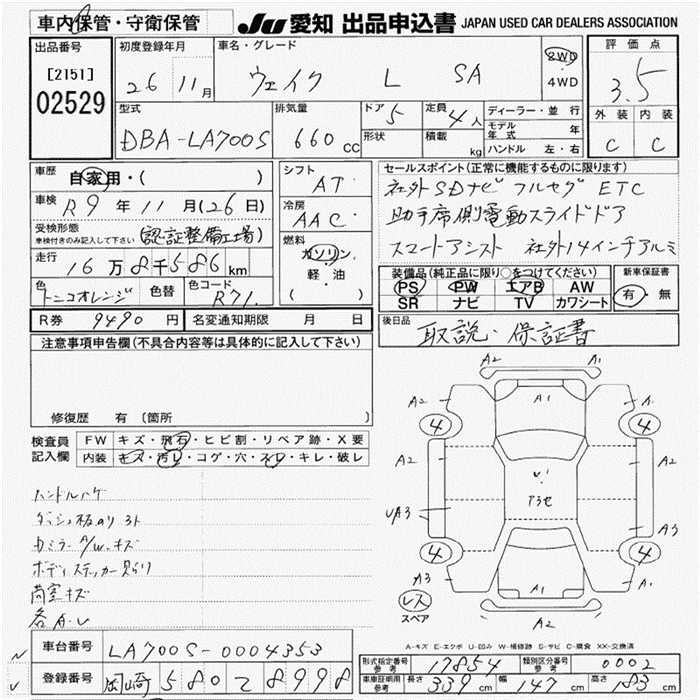 車内保管・守衛保管 JU 愛知 出品申込書 JAPAN USED CAR DEALERS ASSOCIATION
出品番号 初度登録年月 車名・グレード 評価点
[2151] 26 11月 ウェイク L SA 2WD 4WD 3.5
02529
型式 排気量 ドア 5 定員 4人 ディーラー・並行 外装 内装
DBA-LA700S 660cc 形状 積載 kg モデル年式 年 C C
ハンドル 左・右
車歴 自家用・( ) シフト AT セールスポイント(正常に機能するものに限ります)
車検 R9年11月(26日) 社外SDナビ フルセグ ETC
受検形態 冷房 AAC 助手席側電動スライドドア
車検付きのみ記入して下さい (認証整備工場) 燃料 ガソリン 軽・油 ( ) スマートアシスト 社外14インチアルミ
走行 16万8千586km 装備品(純正品に限り○をつけてください) 新車保証書
色 トニコオレンジ 色替 色コード R71. PS PW エアB AW 有・無
SR ナビ TV カワシート
R券 9490円 名変通知期限 月 日 後日品 取説・保証書
注意事項申告欄(不具合内容等は具体的に記入して下さい)
修復歴 有 〔箇所
検査員 FW キズ・飛石・ヒビ割・リペア跡・X要
記入欄 内装 キズ・汚レ・コゲ・穴・スレ・キレ・破レ
A2 A1
A2 A1 A2
4 4
A2 A2
UA3 A3
4 4
A3 A1 A3
A2
レス
スペア
ハンドルハゲ
ダッシュ板のり
キズ
荷室キズ
A-キズ E-エクボ U-凹み W-補修跡 S-サビ C-腐食 XX-交換済
車台番号 LA700S-0004353
登録番号 岡崎 580 て 8998
形式指定番号 参考 17854 類別区分番号 参考 0002
車庫証明用 参考 長さ 339cm 幅 147cm 高さ 183cm